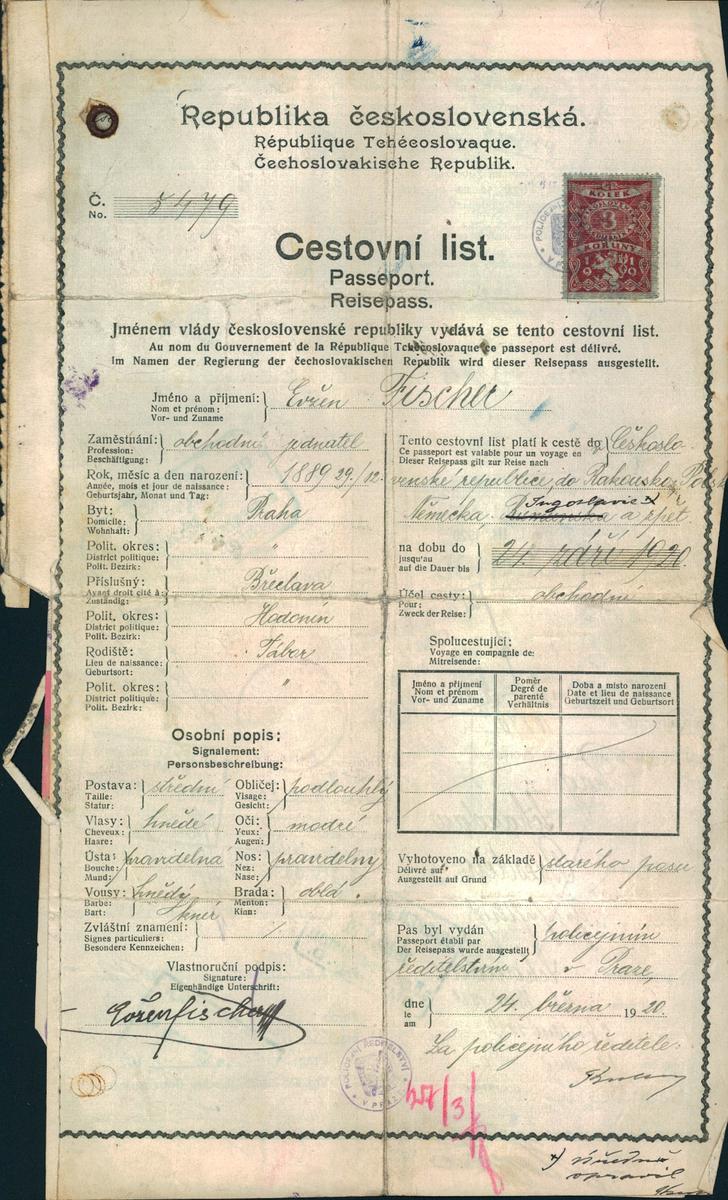 Republika československá.
République Tchécoslovaque.
Čechoslovakische Republik.
Č. 5479
No.
KOLEK
3
KORUNY
1919
Cestovní list.
Passeport.
Reisepass.
Jménem vlády československé republiky vydává se tento cestovní list.
Au nom du Gouvernement de la République Tchécoslovaque ce passeport est délivré.
Im Namen der Regierung der čechoslovakischen Republik wird dieser Reisepass ausgestellt.
Jméno a příjmení: Evžen Fischer
Nom et prénom:
Vor- und Zuname
Zaměstnání: obchodní jednatel
Profession:
Beschäftigung:
Rok, měsíc a den narození: 1889 29./12.
Année, mois et jour de naissance:
Geburtsjahr, Monat und Tag:
Byt: Praha
Domicile:
Wohnhaft:
Polit. okres: "
District politique:
Polit. Bezirk:
Příslušný: Břeclava
Ayant droit cité à:
Zuständig:
Polit. okres: Hodonín
District politique:
Polit. Bezirk:
Rodiště: Tábor
Lieu de naissance:
Geburtsort:
Polit. okres: "
District politique:
Polit. Bezirk:
Osobní popis:
Signalement:
Personsbeschreibung:
Postava: střední
Taille:
Statur:
Obličej: podlouhlý
Visage:
Gesicht:
Vlasy: hnědé
Cheveux:
Haare:
Oči: modré
Yeux:
Augen:
Ústa: pravidelná
Bouche:
Mund:
Nos: pravidelný
Nez:
Nase:
Vousy: hnědé
Barbe: knír
Bart:
Brada: oblá.
Menton:
Kinn:
Zvláštní znamení: /
Signes particuliers:
Besondere Kennzeichen:
Vlastnoruční podpis:
Signature:
Eigenhändige Unterschrift:
Evžen Fischer
Tento cestovní list platí k cestě do Českoslo
Ce passeport est valable pour un voyage en
Dieser Reisepass gilt zur Reise nach
venské republice do Rakouska, Pols
Jugoslavie x
Německa, Rumunska a zpět
na dobu do 24. září 1920.
jusqu'au
auf die Dauer bis
Účel cesty: obchodní
Pour:
Zweck der Reise:
Spolucestující:
Voyage en compagnie de:
Mitreisende:
Jméno a příjmení
Nom et prénom
Vor- und Zuname
Poměr
Degré de
parenté
Verhältnis
Doba a místo narození
Date et lieu de naissance
Geburtszeit und Geburtsort
Vyhotoveno na základě starého pasu
Délivré auf
Ausgestellt auf Grund
Pas byl vydán policejním
Passeport établi par
Der Reisepass wurde ausgestellt
ředitelstvím v Praze,
dne 24. března 1920.
le
am
Za policejního ředitele:
POLICEJNÍ ŘEDITELSTVÍ
V PRAZE
x) úředně
opravil